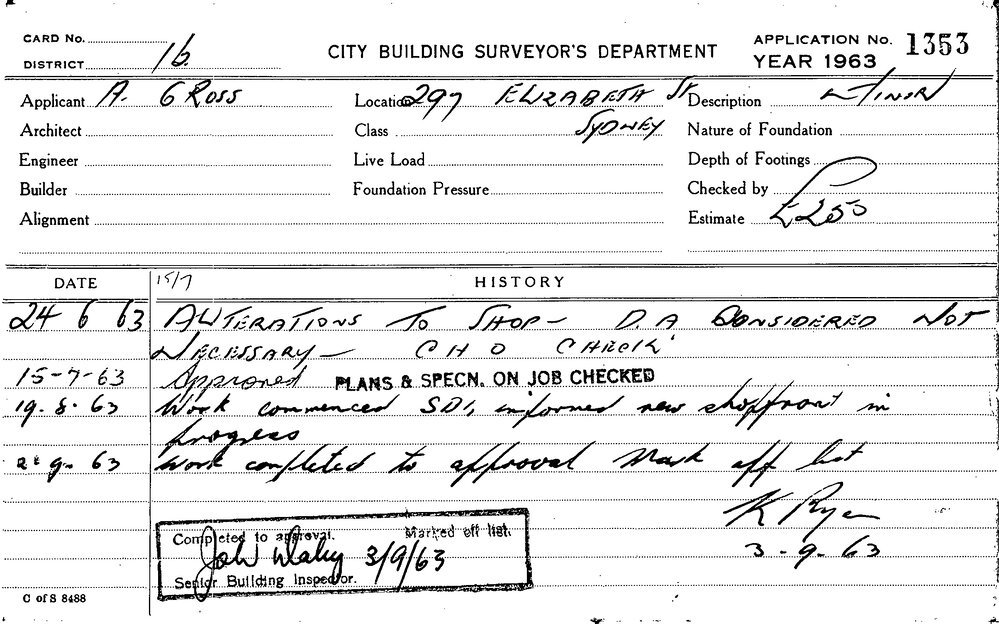 CARD No.
DISTRICT 16.
CITY BUILDING SURVEYOR'S DEPARTMENT
APPLICATION No. 1353
YEAR 1963
Applicant A. GROSS
Location 297 ELIZABETH St
Description MINOR
Architect
Class SYDNEY
Nature of Foundation
Engineer
Live Load
Depth of Footings
Builder
Foundation Pressure
Checked by
Alignment
Estimate £250
DATE 15/7 HISTORY
24 6 63 ALTERATIONS TO SHOP – D.A CONSIDERED NOT
NECESSARY – C H O CHECK
15-7-63 Approved PLANS & SPECN. ON JOB CHECKED
19.8.63 Work commenced SDI, informed new shopfront in
progress
2 9. 63 Work completed to approval Mark off list
K Ryan
3-9-63
Completed to approval. Marked off list.
3/9/63
Senior Building Inspector.
C of S 8488